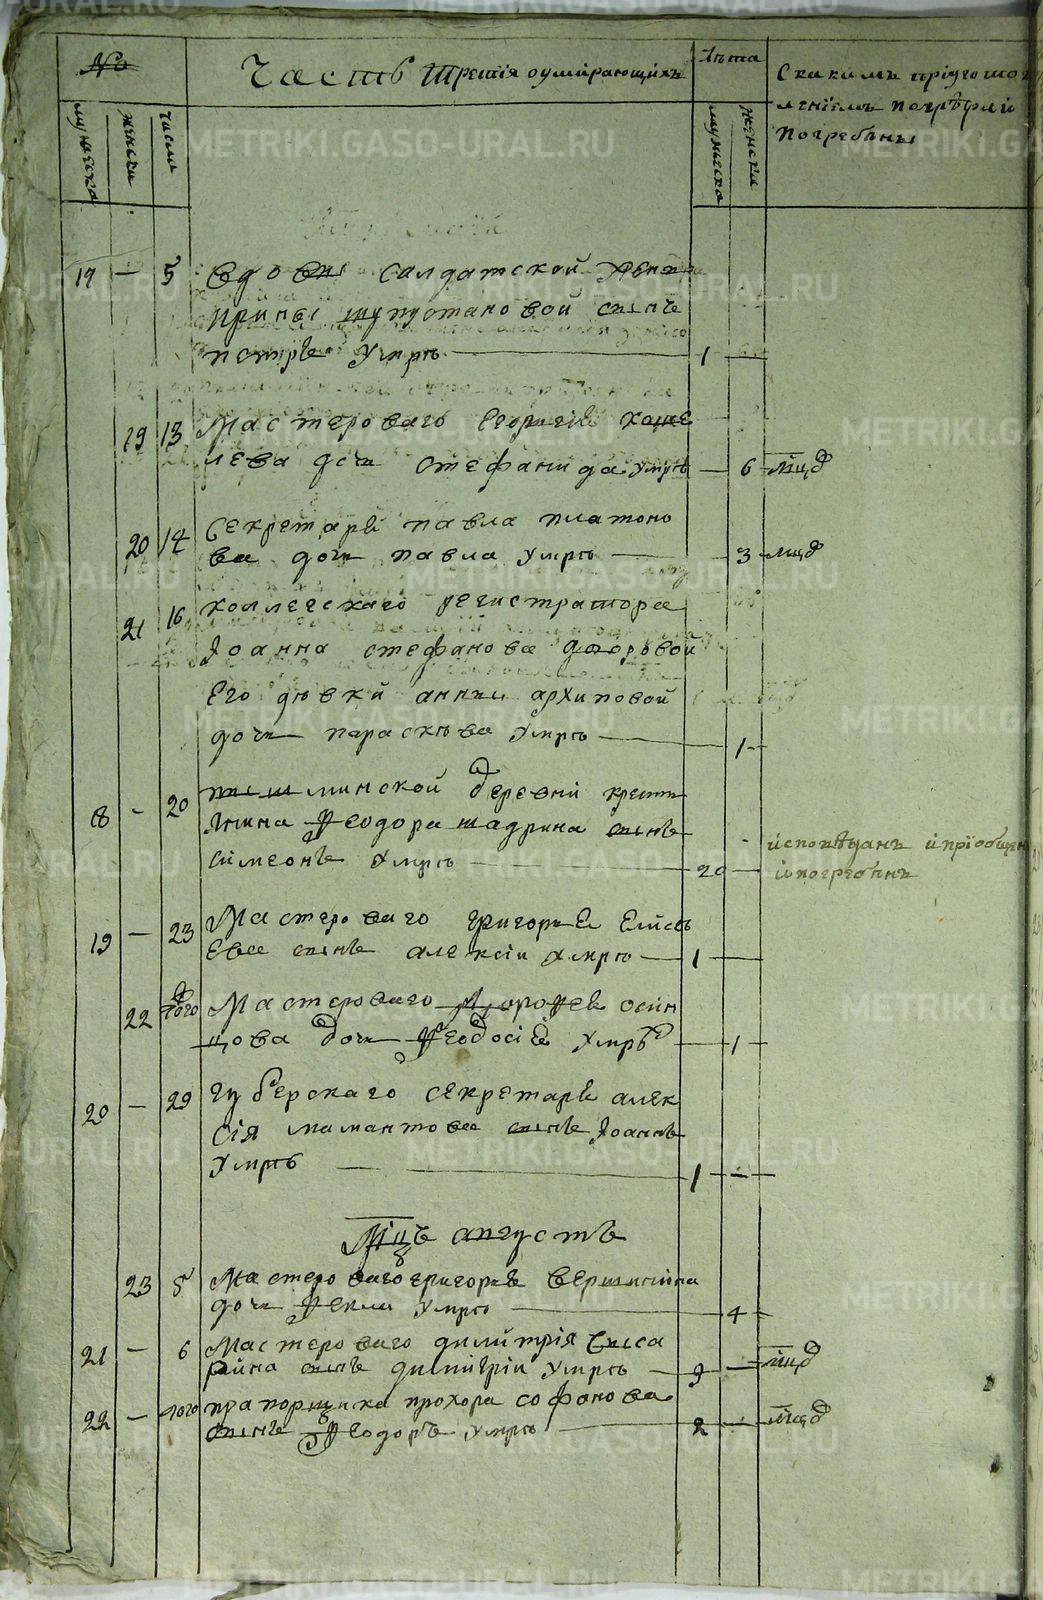 № Часть Третія оумирающихъ Лѣта
С какимъ пріугото
вленіемъ померъ
погребены
мужеска женски число мужеска женски
17 — 5 Вдовы салдатской
Ирины сынъ
петръ умре 1 —
19 13 Мастероваго Георгія
лева дочь стефанида умре — 6 мцѣ
20 14 Секретаря павла платоно
ва дочь павла умре — 3 мцѣ
21 16 коллегскаго регистратора
Іоанна стефанова дворовой
его дѣвки анны архиповой
дочь параскѣва умре — 1
18 — 20 минской деревни кресть
янина Ѳеодора шадрина сынъ
симеонъ умре — 20 — исповѣданъ и пріобщен
и погребенъ
19 — 23 Мастероваго григорья Елисѣ
ева сынъ алексій умре — 1 —
22 того Мастероваго осин
цова дочь Ѳеодосія умре — 1
20 — 29 губерскаго секретаря алек
сія мамантова сынъ Іоаннъ
умре — 1 —
Мцъ августъ
23 5 Мастероваго григорья вершинина
дочь Ѳекла умре — 4
21 — 6 Мастероваго димитрія
сынъ димитрій умре — 9 — мцѣ
22 — того прапорщика прохора софонова
сынъ Ѳеодоръ умре — 2 — мцѣ
METRIKI.GASO-URAL.RU